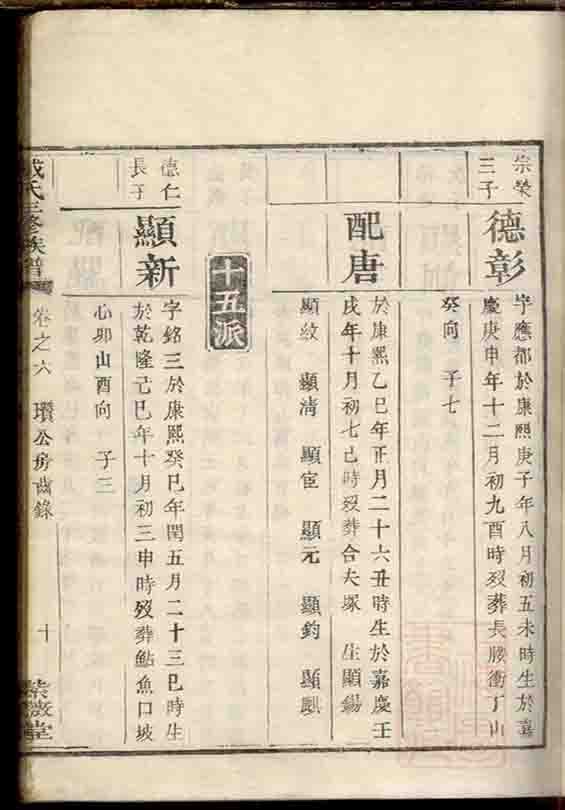 宗榮
三子
德彰
字應都於康熙庚子年八月初五未時生於嘉
慶庚申年十二月初九酉時歿葬長腰衝丁山
癸向 子七
配唐
於康熙乙巳年正月二十六丑時生於嘉慶壬
戌年十月初七巳時歿葬合夫塚 生顯錫
顯紋 顯清 顯宦 顯元 顯鈞 顯麒
十五派
德仁
長子
顯新
字銘三於康熙癸巳年閏五月二十三巳時生
於乾隆己巳年十月初三申時歿葬鮎魚口坡
心卯山酉向 子三
氏三修族譜 卷之六 瓚公房齒錄 十 紫薇堂